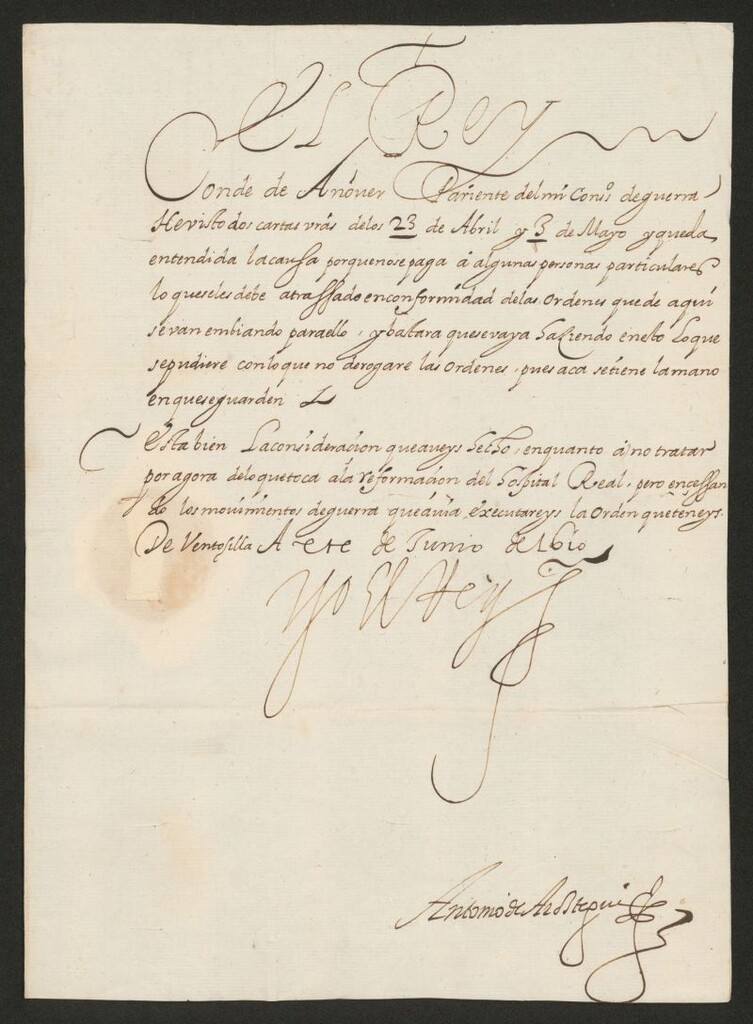 El Rey
Conde de Anóver Pariente del mi Cons.º de guerra
He visto dos cartas vrãs de los 23 de Abril y 3 de Mayo y queda
entendida la caussa porque no se paga à algunas personas particulares
lo que se les debe atrassado en conformidad de las ordenes que de aqui
se van embiando para ello, y bastara que se vaya haziendo en esto lo que
se pudiere con lo que no derogare las ordenes, pues aca se tiene la mano
en que se guarden
Esta bien La consideracion que aueys hecho, en quanto à no tratar
por agora de lo que toca a la reformacion del hospital Real, pero en cessan
do los mouimientos de guerra que auia executareys la orden que teneys.
De Ventosilla A de Junio de 1610
Yo El Rey
Antonio de Arostegui